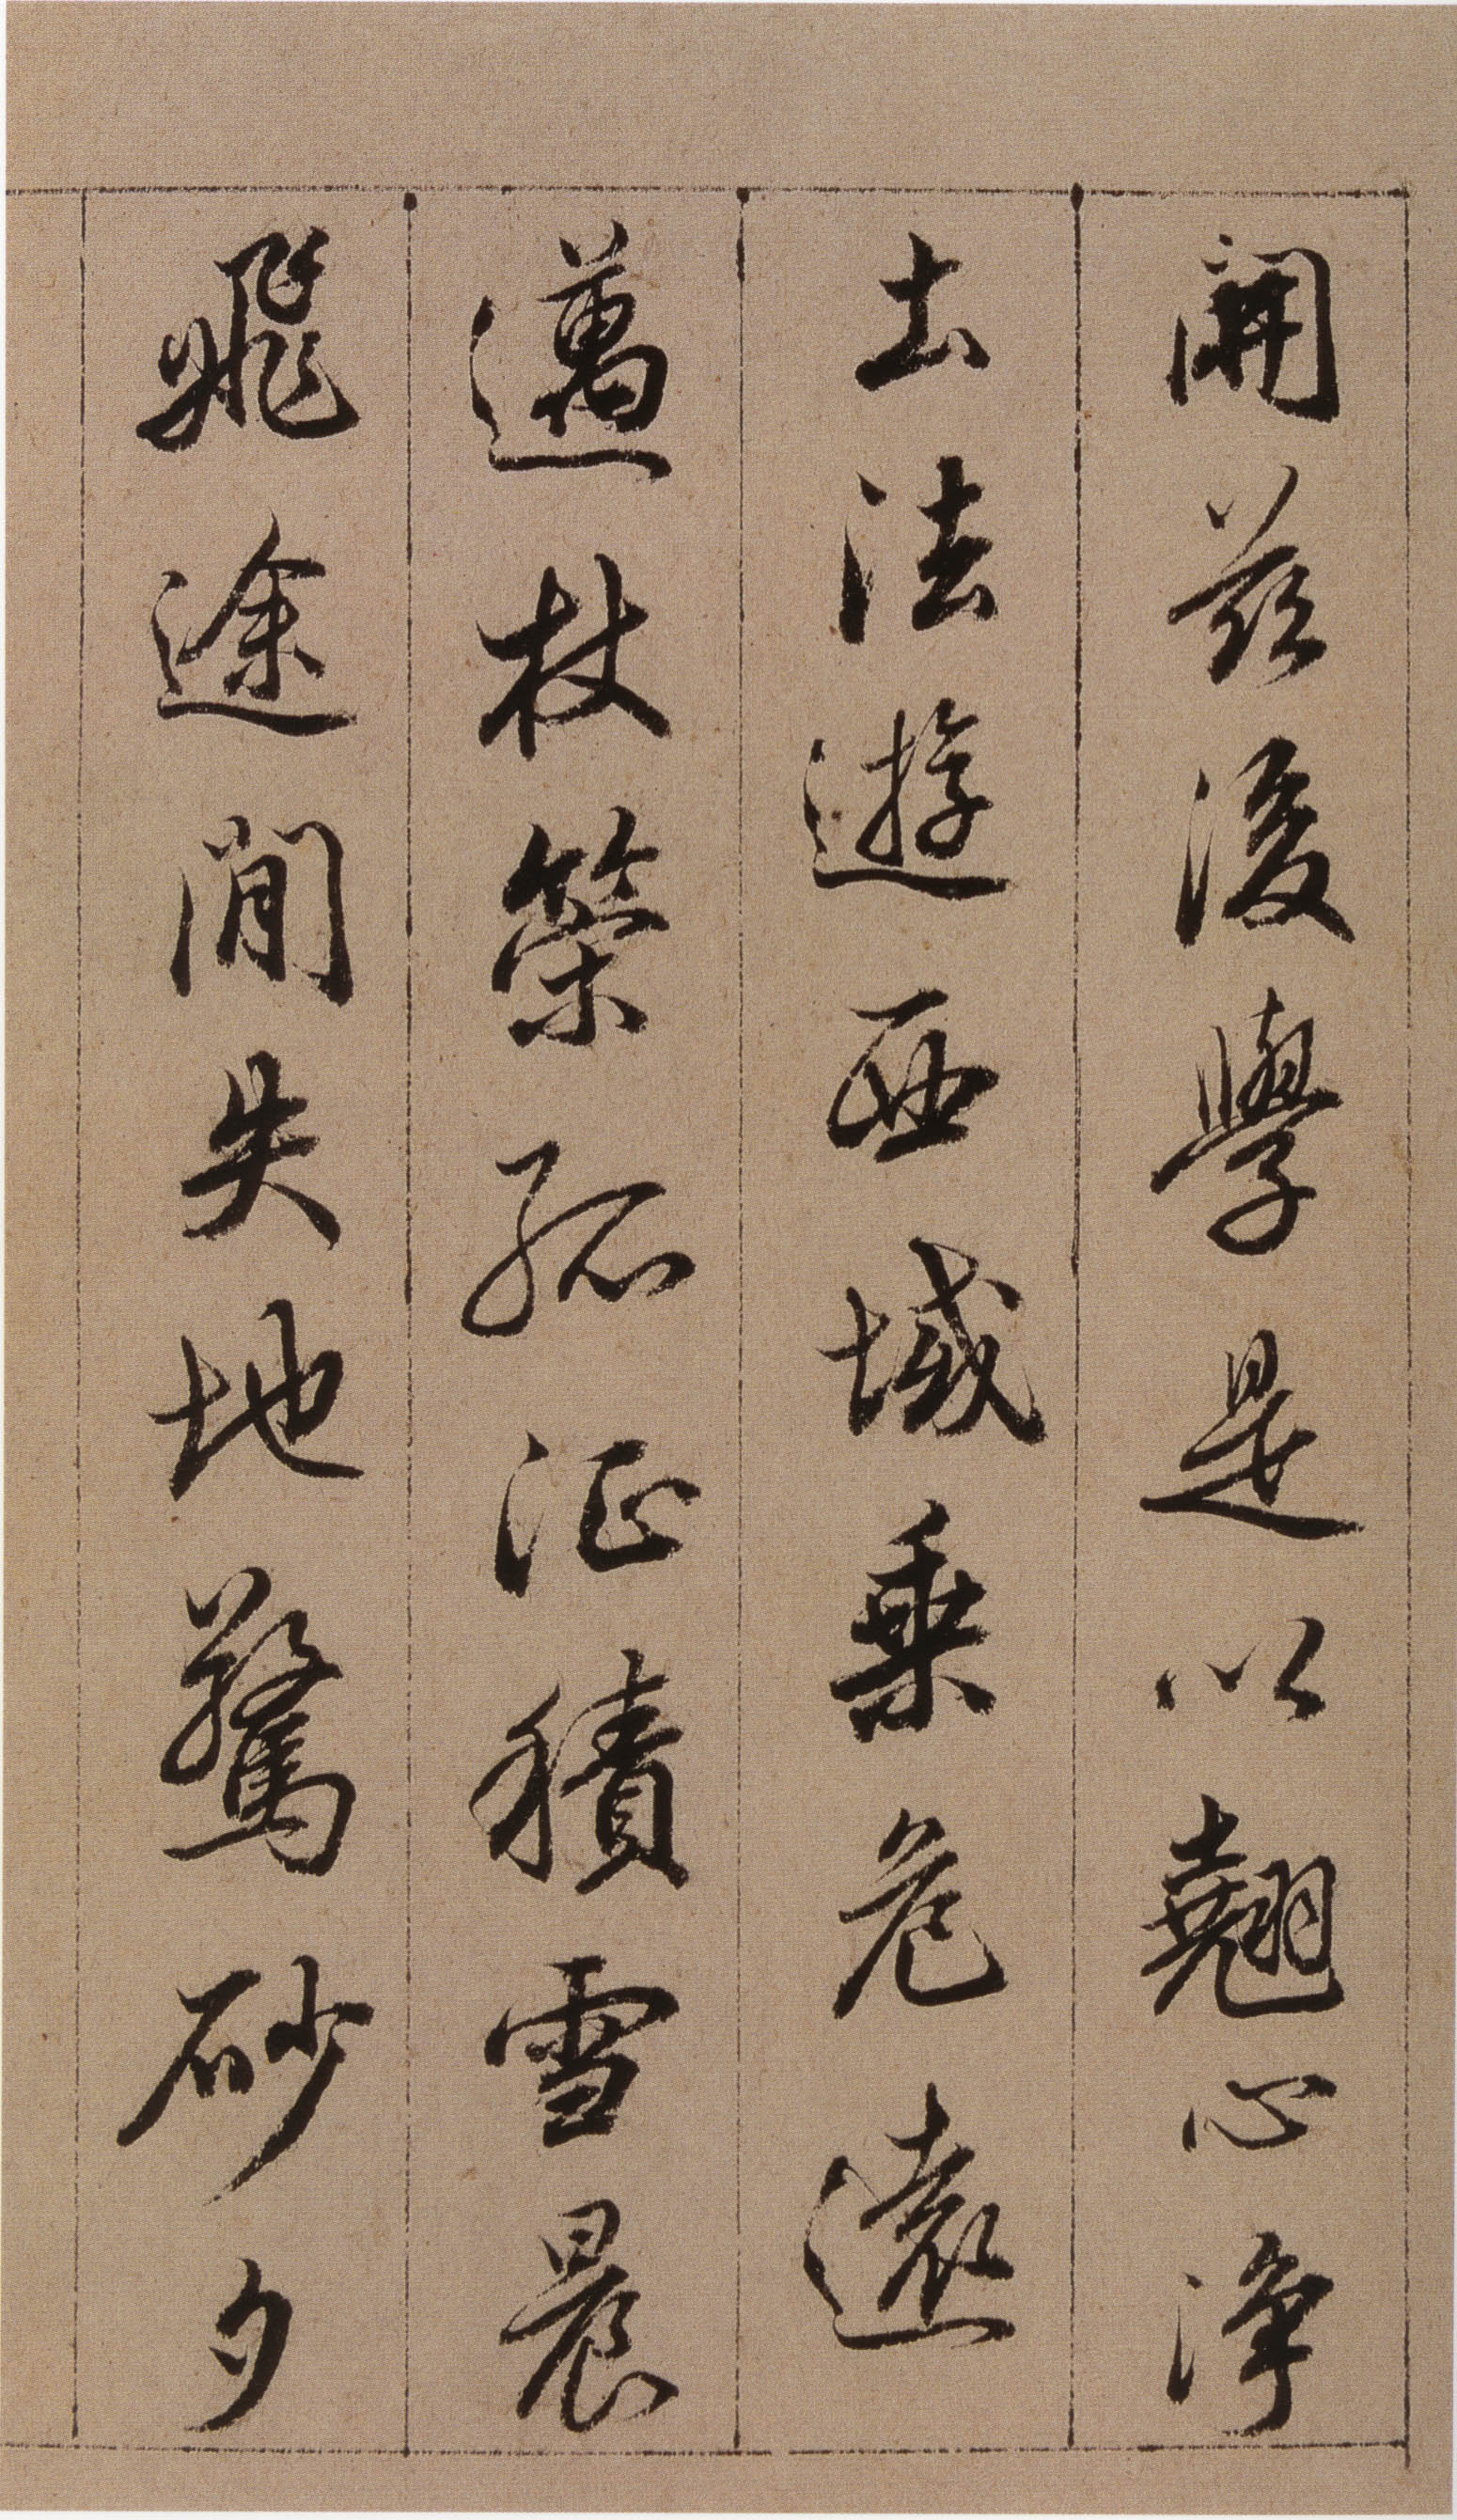 開茲後學是以翹心淨
土法遊西域乗危遠
邁杖策孤征積雪晨
飛途閒失地驚砂夕